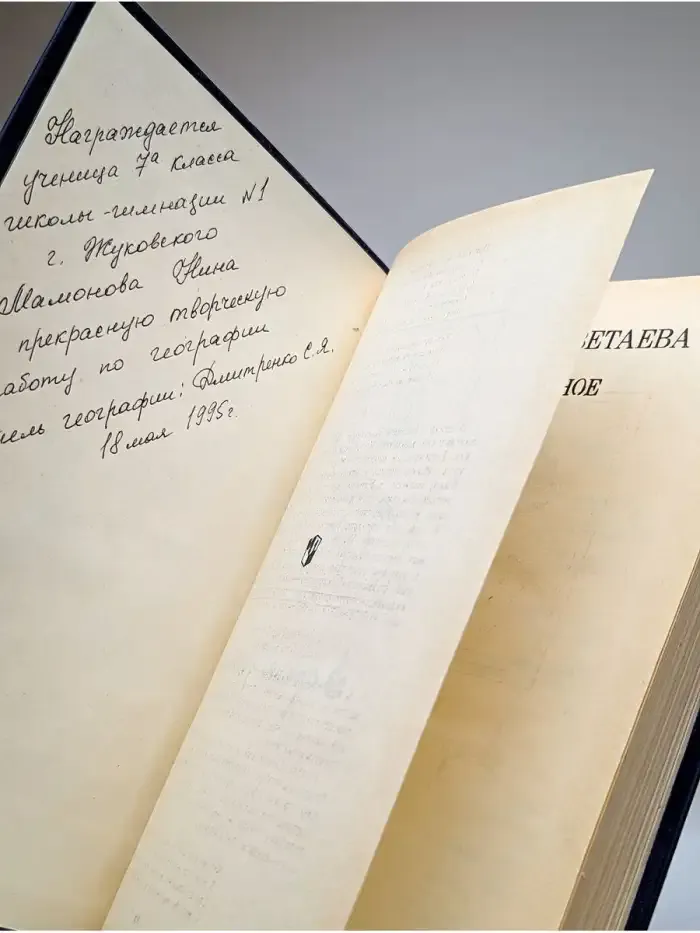 Награждается
ученица 7а класса
школы-гимназии №1
г. Жуковского
Мамонова Нина
прекрасную творческую
аботу по географии
ель географии: Дмитренко С.Я.
18 мая 1995г.
ВЕТАЕВА
НОЕ